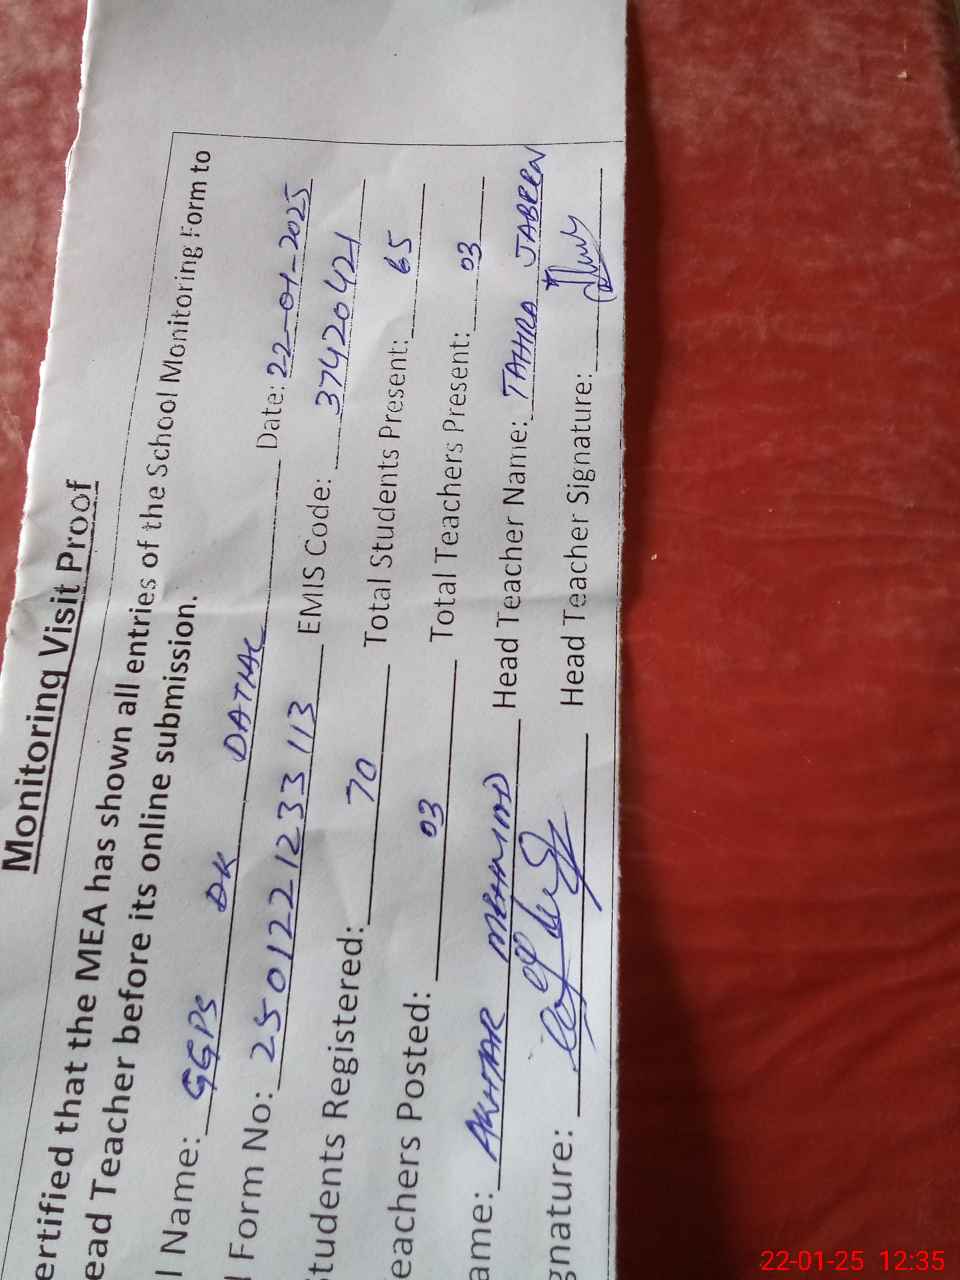 Monitoring Visit Proof
ertified that the MEA has shown all entries of the School Monitoring Form to
ead Teacher before its online submission.
l Name: GGPS DK DATHAL Date: 22-01-2025
l Form No: 2501221233113 EMIS Code: 37420421
Students Registered: 70 Total Students Present: 65
eachers Posted: 03 Total Teachers Present: 03
ame: AKHTAR MEHMOOD Head Teacher Name: TAHIRA JABEEN
gnature: Head Teacher Signature:
22-01-25 12:35